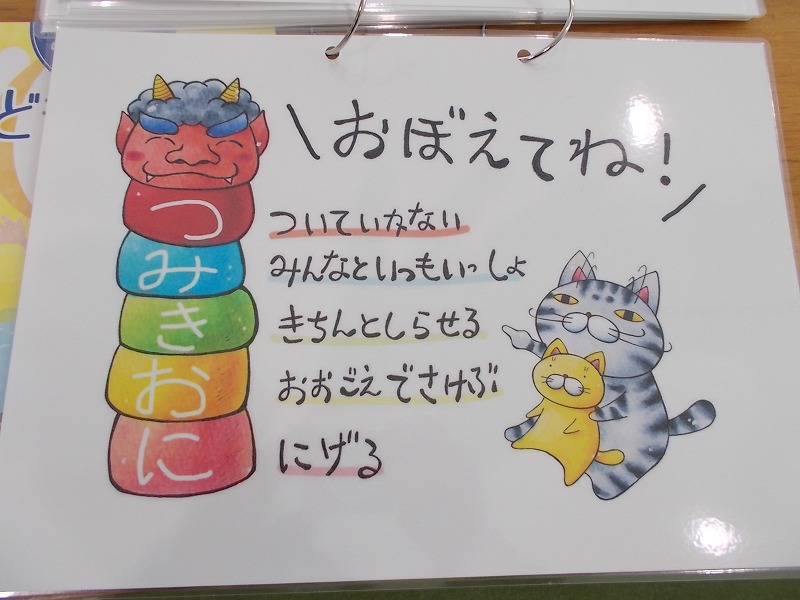 おぼえてね!
つみきおに
ついていかない
みんなといつもいっしょ
きちんとしらせる
おおごえでさけぶ
にげる
ど